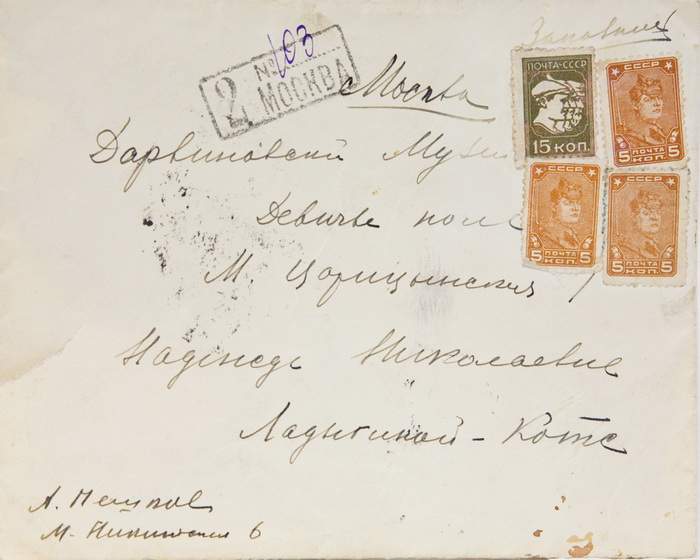 Заказное
№ 103
2 МОСКВА
Москва
ПОЧТА-СССР
15 КОП.
СССР
5 ПОЧТА 5
КОП.
СССР
5 ПОЧТА 5
КОП.
СССР
5 ПОЧТА 5
КОП.
Дарвиновский Музей
Девичье поле
М. Царицынская
Надежде Николаевне
Ладыгиной-Котс
А.
М. Никитская 6